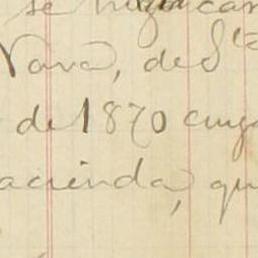 se
Nava, de Sta
de 1870 cuya
acienda, qu